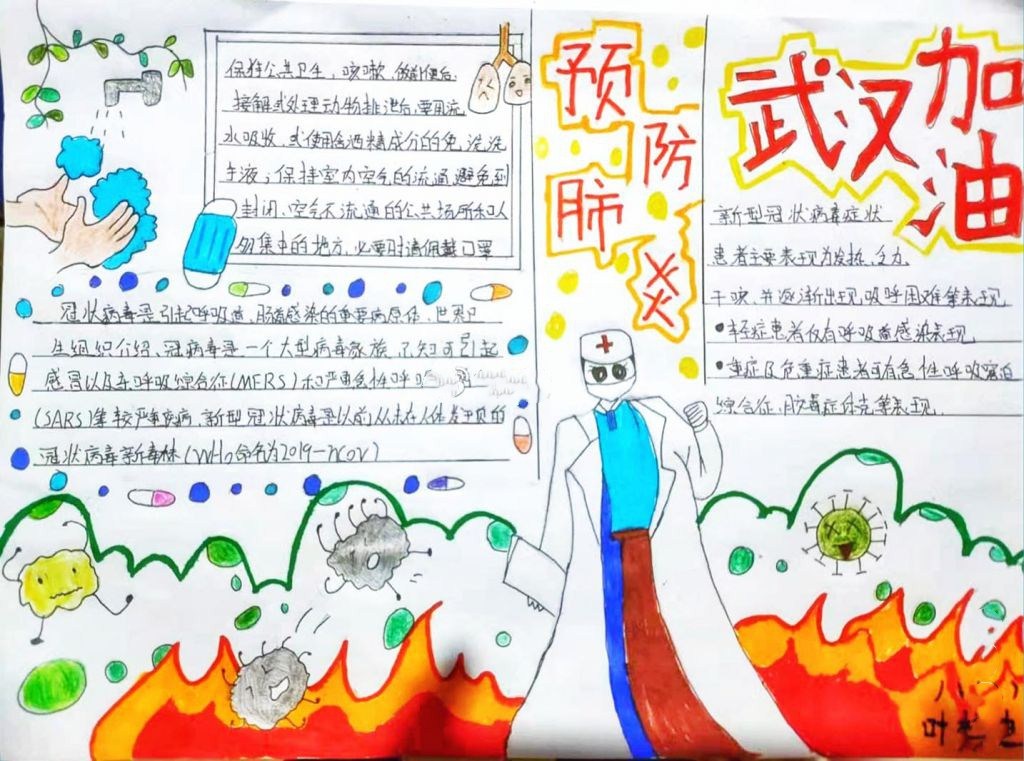 保持公共卫生，咳嗽，做前便后
接解或处理动物排泄后，要用流
水吸收，或使用含酒精成分的免洗洗
手液；保持室内空气的流通避免到
封闭、空气不流通的公共场所和人
群集中的地方，必要时请佩戴口罩
冠状病毒是引起呼吸道、肠道感染的重要病原体，世界卫
生组织介绍，冠病毒是一个大型病毒家族，已知可引起
感冒以及车呼吸综合征(MERS)和严重急性呼
(SARS)集较严重疾病，新型冠状病毒是以前从未在人体发现的
冠状病毒新毒株(Who命名为2019-ncov)
预防肺炎
武汉加油
新型冠状病毒症状
患者主要表现为发热、乏力、
干咳，并逐渐出现呼吸困难等表现
•轻症患者仅有呼吸道感染表现
•重症及危重症患者可有急性呼吸窘迫
综合征、脓毒症休克等表现.
叶